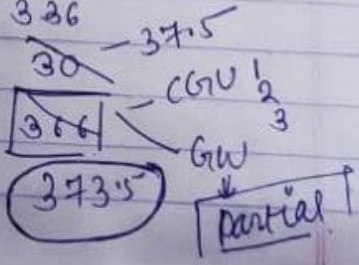 336
30 - 37.5
366 - CGU 1
2
3
GW
373.5
partial